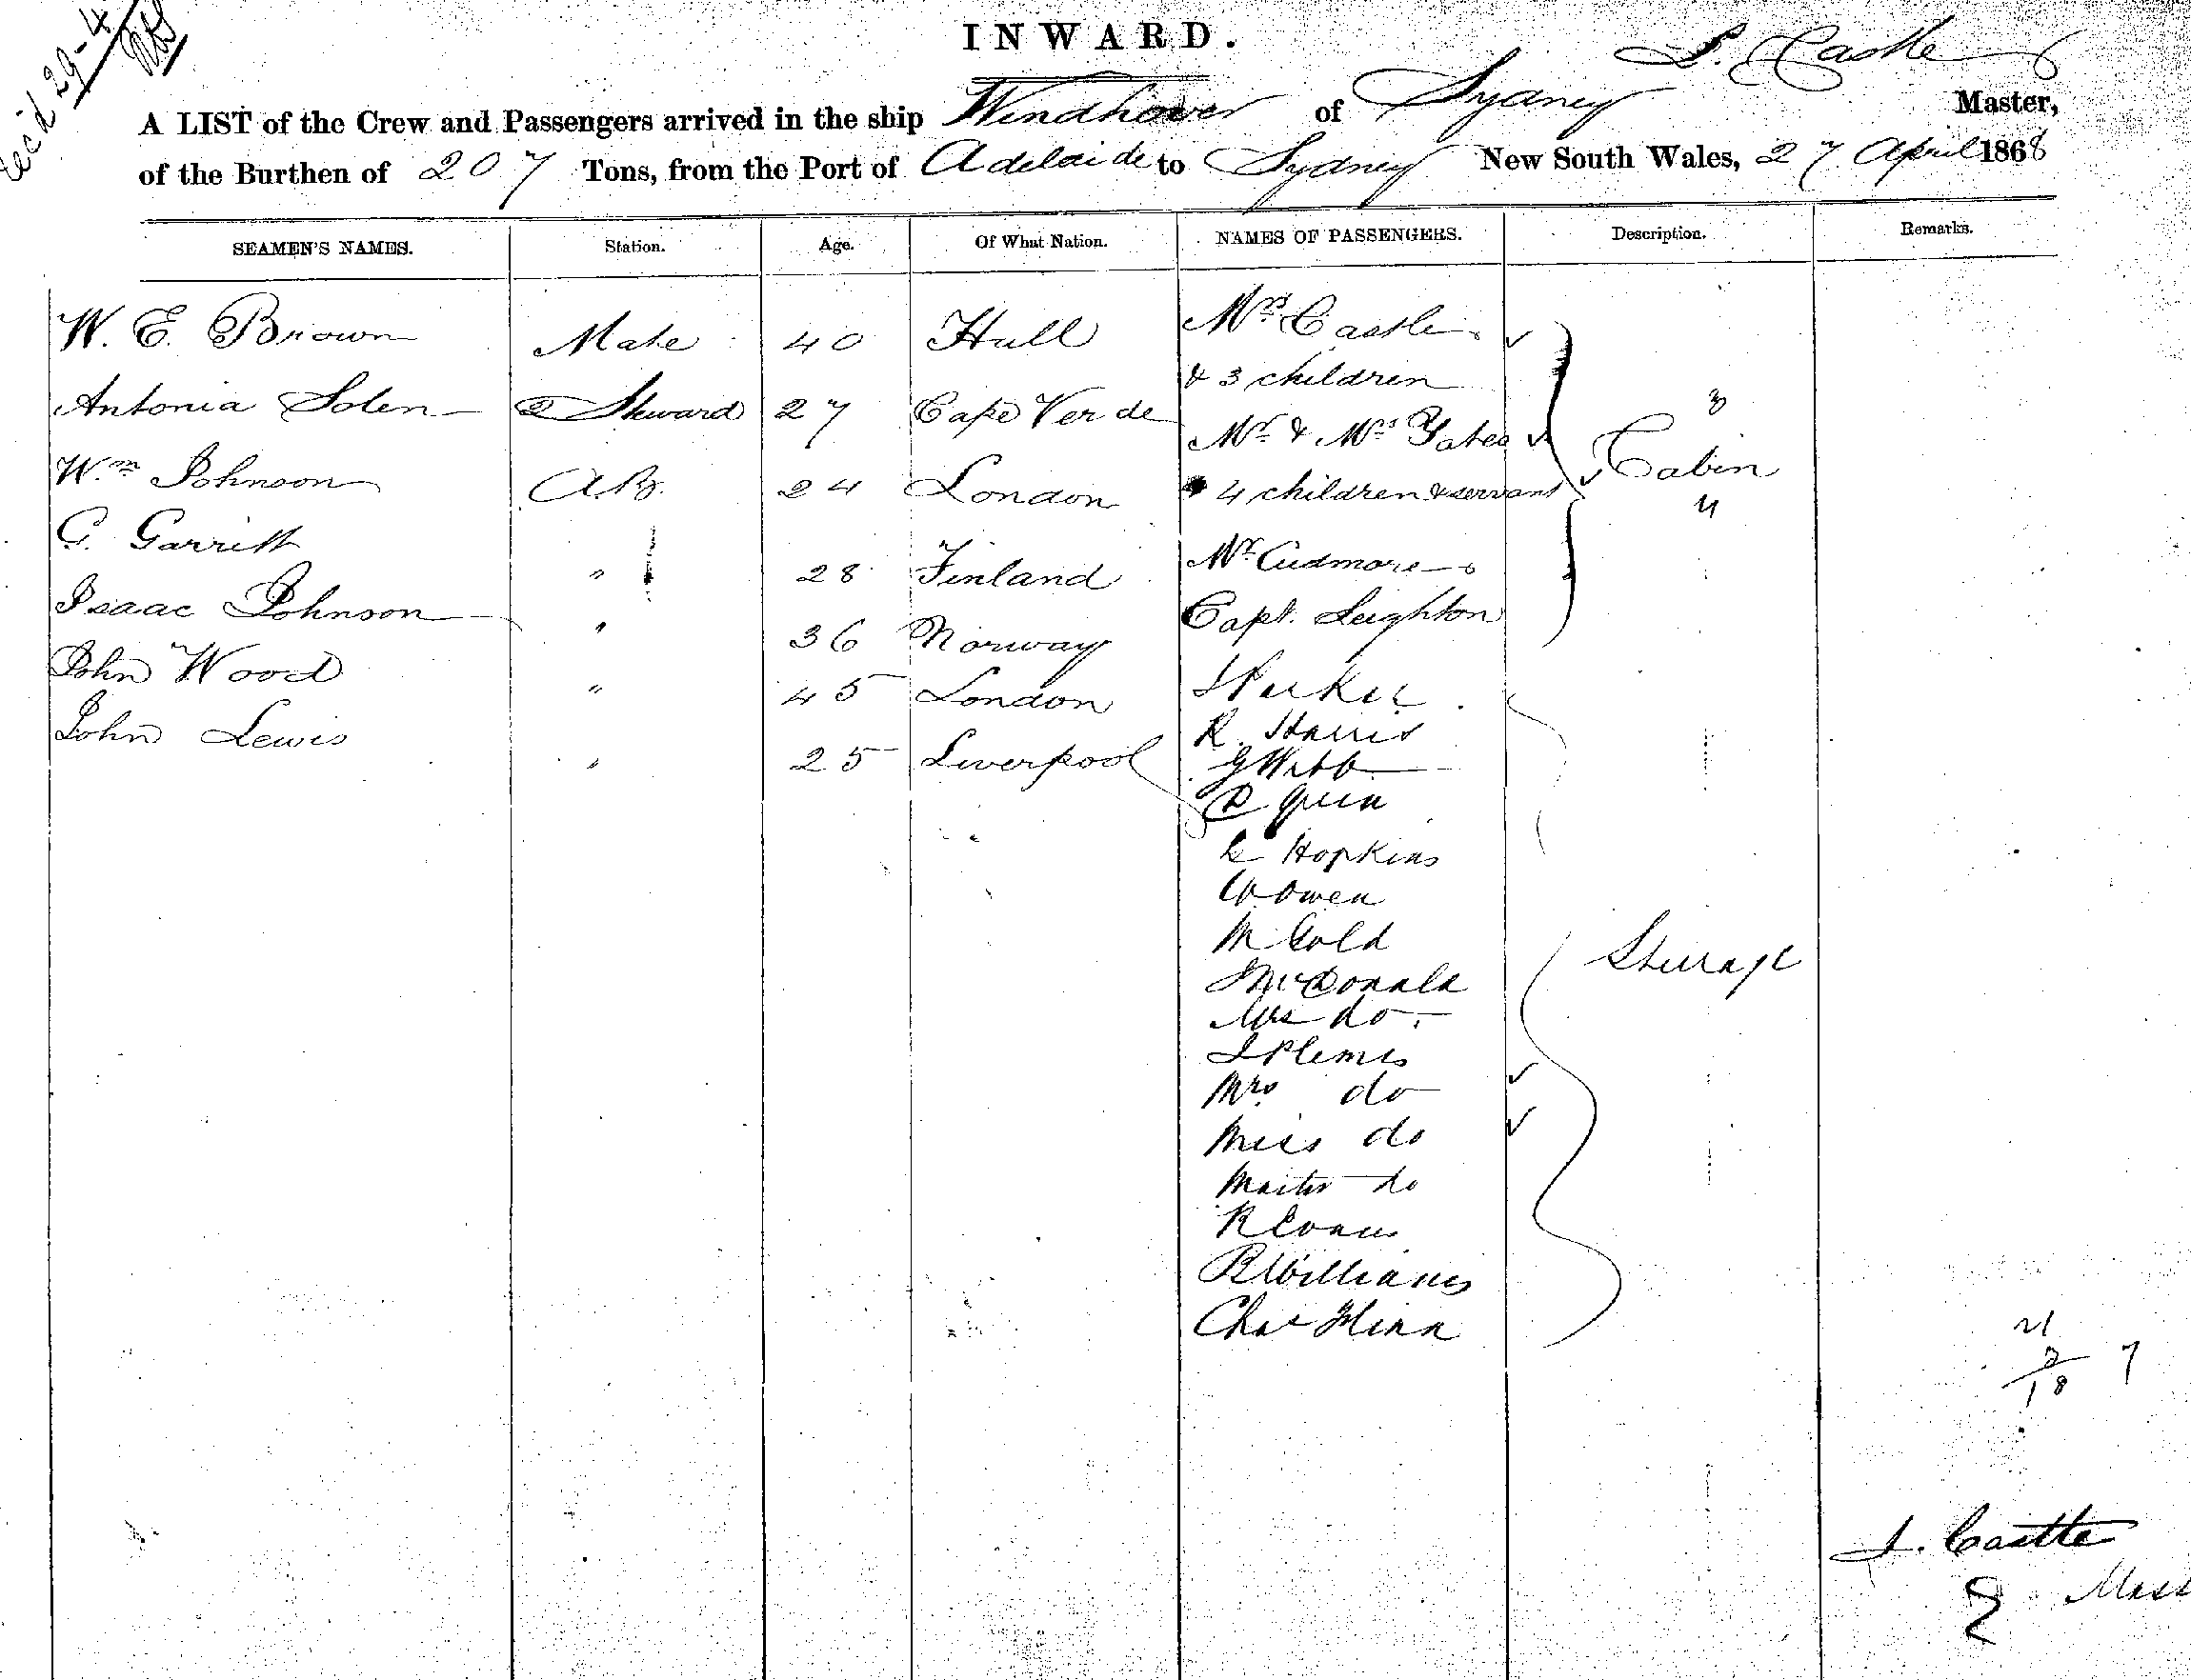 INWARD.
Rec'd 29-4
S. Castle
A LIST of the Crew and Passengers arrived in the ship Windhover of Sydney Master,
of the Burthen of 207 Tons, from the Port of Adelaide to Sydney New South Wales, 27 April 1868
SEAMEN'S NAMES. Station. Age. Of What Nation. NAMES OF PASSENGERS. Description. Remarks.
W. E. Brown Mate 40 Hull Mrs Castle
& 3 children
Antonia Solen Steward 27 Cape Verde Mr & Mrs Yates 3
Cabin
Wm Johnson A.B. 24 London 4 children & servant 4
G. Garritt " 28 Finland Mr Cudmore
Isaac Johnson " 36 Norway Capt. Leighton
John Wood " 45 London Parker
R. Harris
John Lewis " 25 Liverpool G Webb
D Green
Hopkins
W Owen
M Gold
McDonald Steerage
Mrs do
Mrs do
Miss do
Master do
R Evans
R Williams
Chas Flinn
21
2 7
18
S. Castle